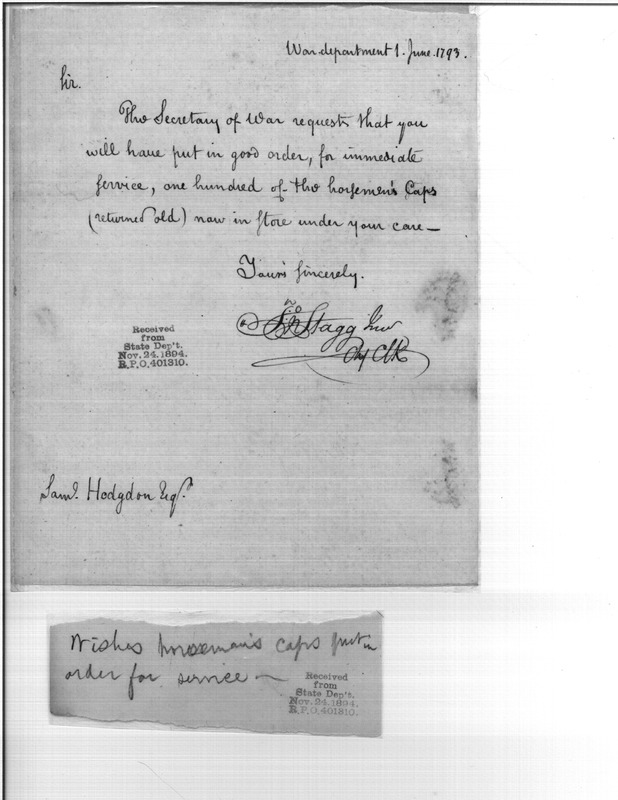 War department 1. June. 1793.
Sir.
The Secretary of War requests that you
will have put in good order, for immediate
service, one hundred of the horsemen's Caps
(returned old) now in store under your care—
Yours sincerely.
Jno Stagg Junr
Chf Clk
Received
from
State Dep't.
Nov. 24. 1894.
R.P.O. 401310.
Saml. Hodgdon Esqr.
Wishes horseman's caps put in
order for service —
Received
from
State Dep't.
Nov. 24. 1894.
R.P.O. 401310.